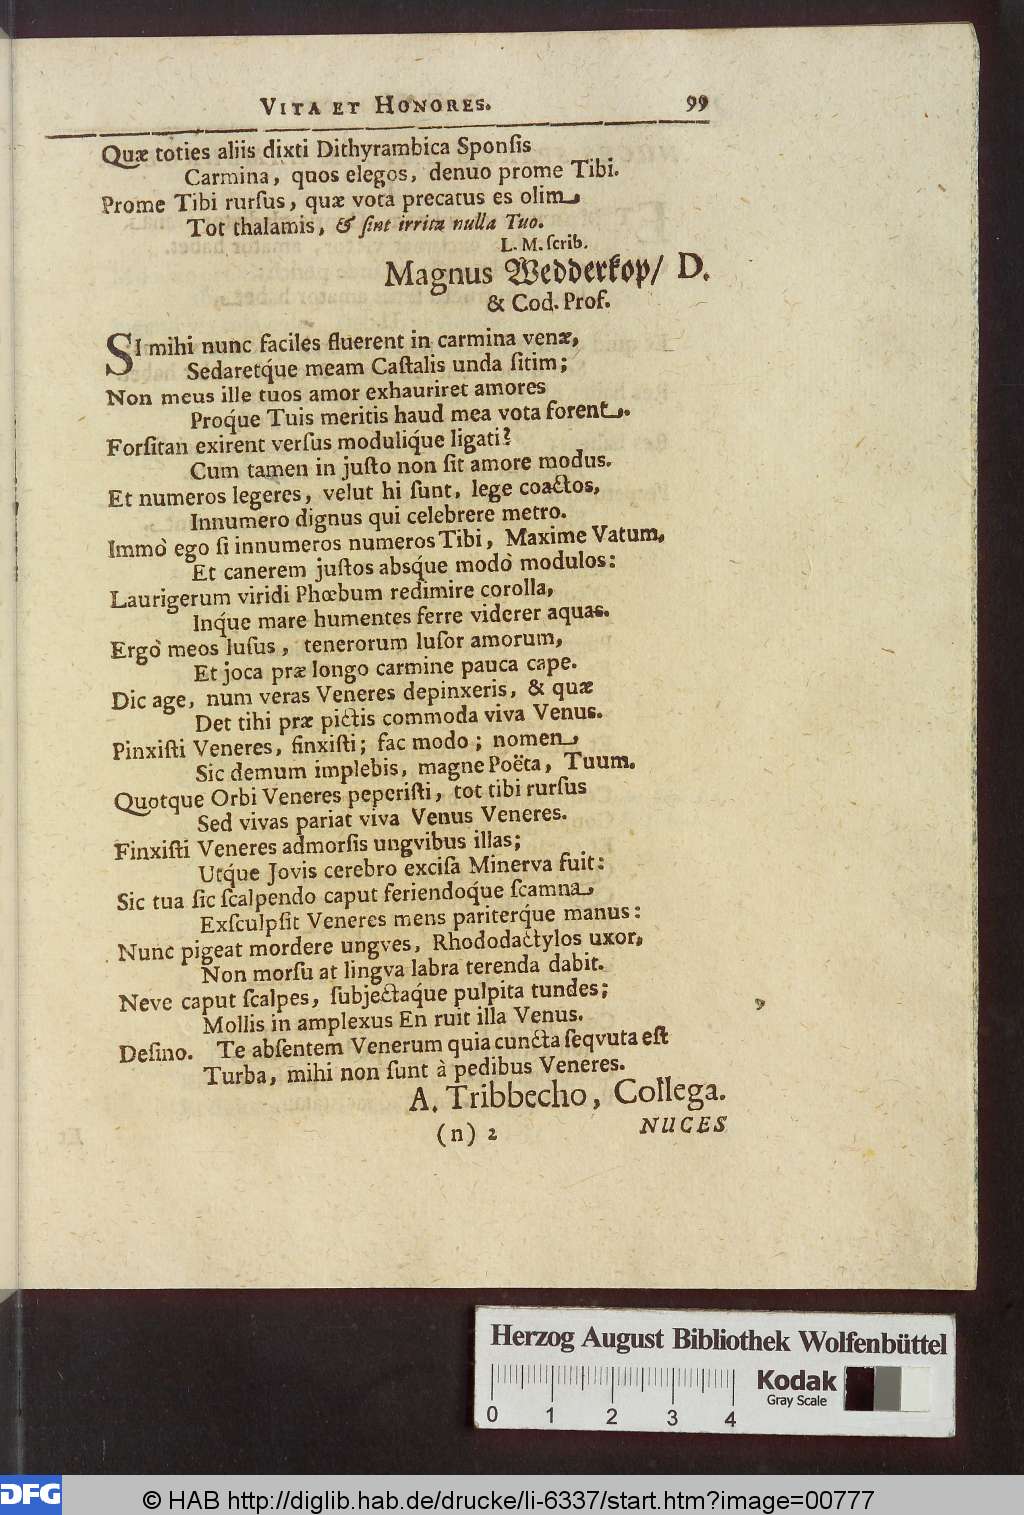 VITA ET HONORES. 99
Quæ toties aliis dixti Dithyrambica Sponſis
Carmina, quos elegos, denuo prome Tibi.
Prome Tibi rurſus, quæ vota precatus es olim,
Tot thalamis, & ſint irrita nulla Tuo.
L. M. ſcrib.
Magnus Wedderkop/ D.
& Cod. Prof.
SI mihi nunc faciles fluerent in carmina venæ,
Sedaretq́ue meam Caſtalis unda ſitim;
Non meus ille tuos amor exhauriret amores
Proq́ue Tuis meritis haud mea vota forent.
Forſitan exirent verſus moduliq́ue ligati?
Cum tamen in juſto non ſit amore modus.
Et numeros legeres, velut hi ſunt, lege coactos,
Innumero dignus qui celebrere metro.
Immò ego ſi innumeros numeros Tibi, Maxime Vatum,
Et canerem juſtos absq́ue modò modulos:
Laurigerum viridi Phœbum redimire corolla,
Inq́ue mare humentes ferre viderer aquas.
Ergò meos luſus, tenerorum luſor amorum,
Et joca præ longo carmine pauca cape.
Dic age, num veras Veneres depinxeris, & quæ
Det tihi præ pictis commoda viva Venus.
Pinxiſti Veneres, finxiſti; fac modo; nomen
Sic demum implebis, magne Poëta, Tuum.
Quotque Orbi Veneres peperiſti, tot tibi rurſus
Sed vivas pariat viva Venus Veneres.
Finxiſti Veneres admorſis ungvibus illas;
Utq́ue Jovis cerebro exciſa Minerva fuit:
Sic tua ſic ſcalpendo caput feriendoq́ue ſcamna,
Exſculpſit Veneres mens pariterq́ue manus:
Nunc pigeat mordere ungves, Rhododactylos uxor,
Non morſu at lingva labra terenda dabit.
Neve caput ſcalpes, ſubjectaq́ue pulpita tundes;
Mollis in amplexus En ruit illa Venus.
Deſino. Te abſentem Venerum quia cuncta ſeqvuta eſt
Turba, mihi non ſunt à pedibus Veneres.
A. Tribbecho, Collega.
(n) 2 NUCES
Herzog August Bibliothek Wolfenbüttel
0 1 2 3 4
Kodak
Gray Scale
DFG
© HAB http://diglib.hab.de/drucke/li-6337/start.htm?image=00777